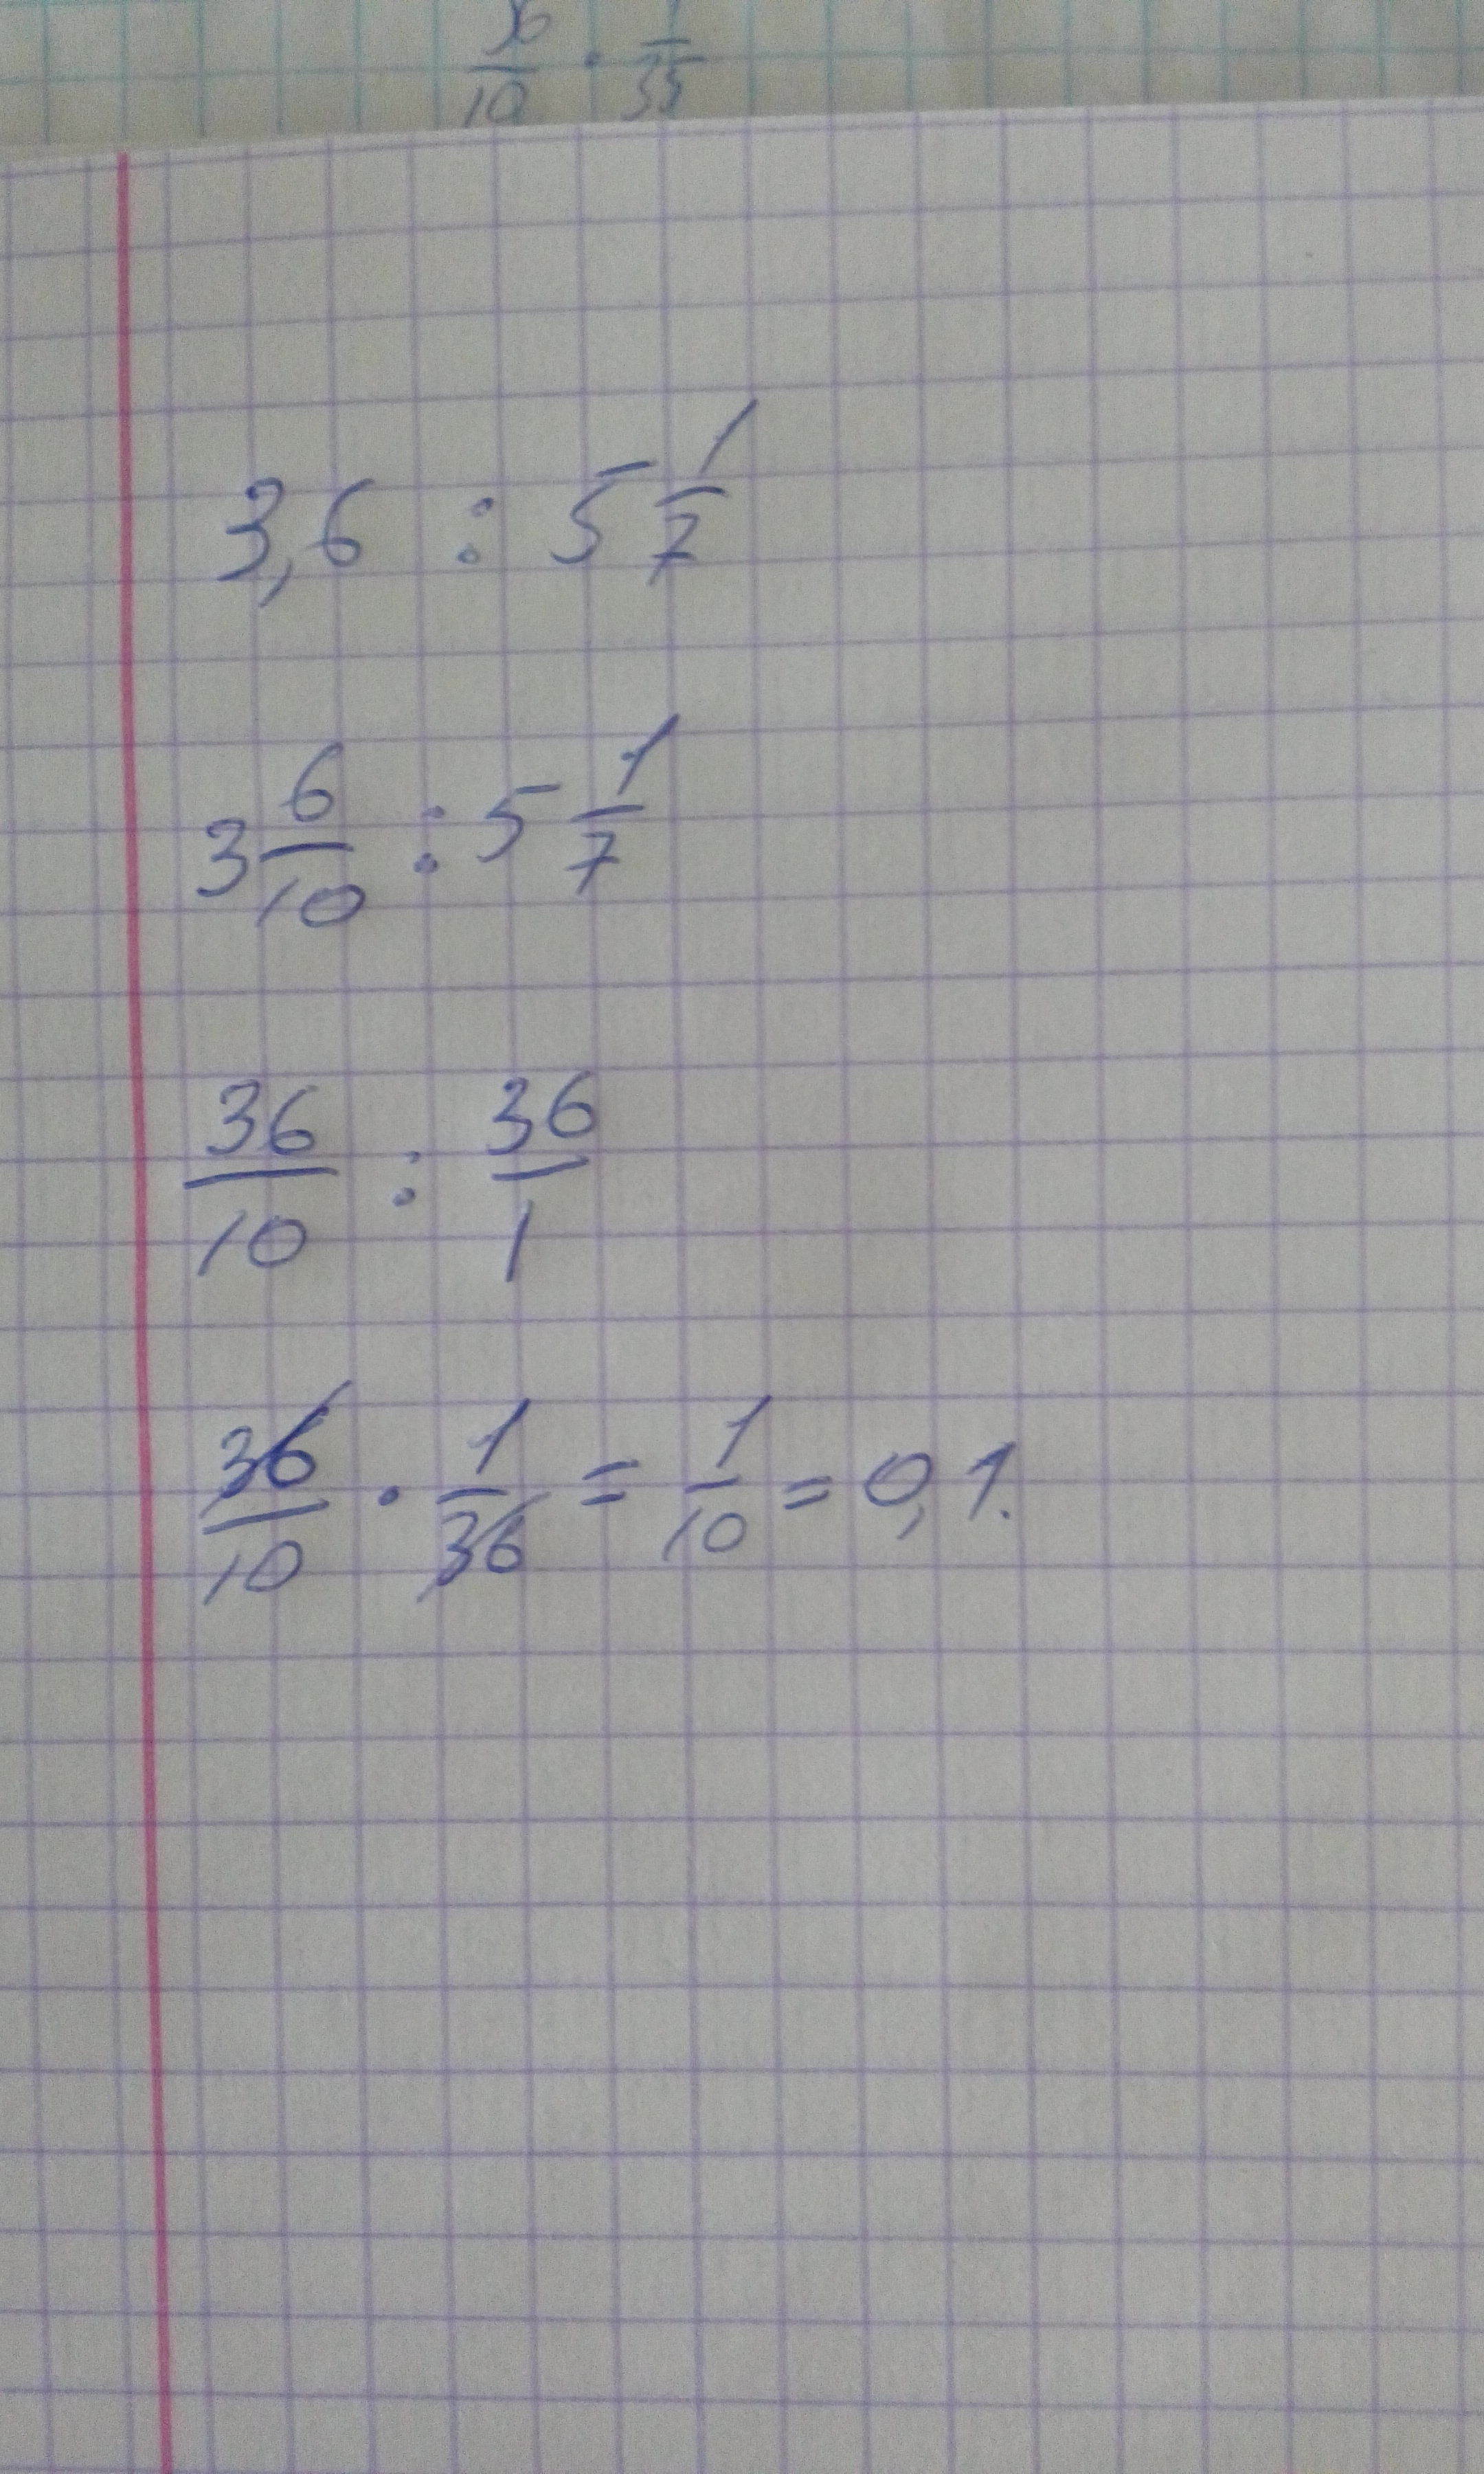 36/10 · 1/35
3,6 : 5 1/7
3 6/10 : 5 1/7
36/10 : 36/1
36/10 · 1/36 = 1/10 = 0,1.